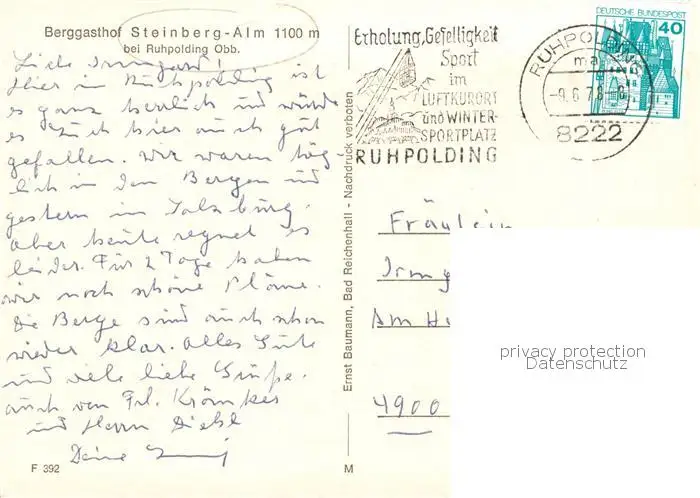 Berggasthof Steinberg-Alm 1100 m
bei Ruhpolding Obb.
Liebe Irmgard!
Hier in Ruhpolding ist
es ganz herrlich und würde
es Euch hier auch gut
gefallen. Wir waren täg
lich in den Bergen und
gestern in Salzburg.
Aber heute regnet es
leider. Für 2 Tage haben
wir noch schöne Pläne.
Die Berge sind auch schon
wieder klar. Alles Gute
und viele liebe Grüße.
auch von Frl. Krömker
und Herrn Diehl
Deine
F 392
Ernst Baumann, Bad Reichenhall - Nachdruck verboten
M
Erholung, Geselligkeit
Sport
im
LUFTKURORT
und WINTER-
SPORTPLATZ
RUHPOLDING
RUHPOLDING
ma
-9.6.78-
8222
DEUTSCHE BUNDESPOST
40
Fräulein
Irmg
Am H
4900
privacy protection
Datenschutz